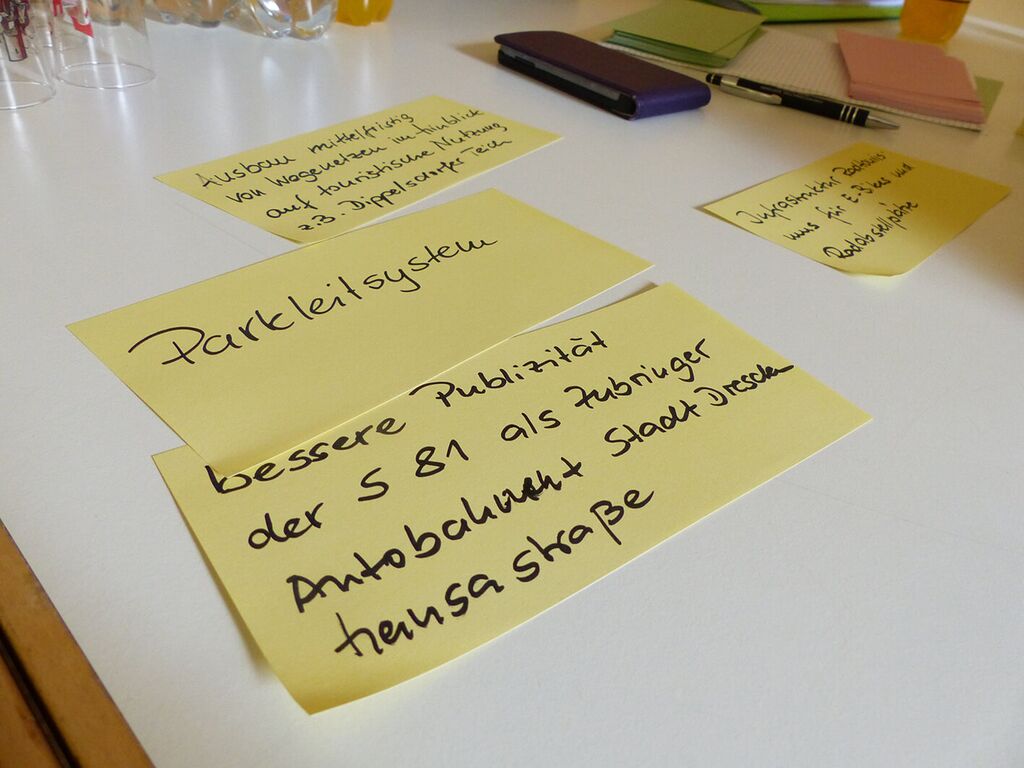 Ausbau mittelfristig
von Wegenetzen im Hinblick
auf touristische Nutzung
z.B. Dippelsdorfer Teich
Parkleitsystem
bessere Publizität
der S 81 als Zubringer
Autobahn Stadt Dresden
hansastraße
Infrastruktur
mus für E-Bikes und
Radabstellplätze